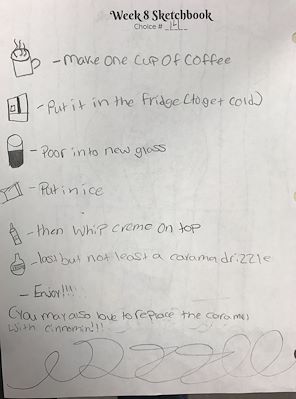 Week 8 Sketchbook
Choice # 14
- Make one cup of coffee
- Put it in the fridge (to get cold)
- Poor into new glass
- Put in ice
- then whip creme on top
- last but not least a carama drizzle
- Enjoy!!!!
(you may also love to replace the caramel
with cinnamin!!!